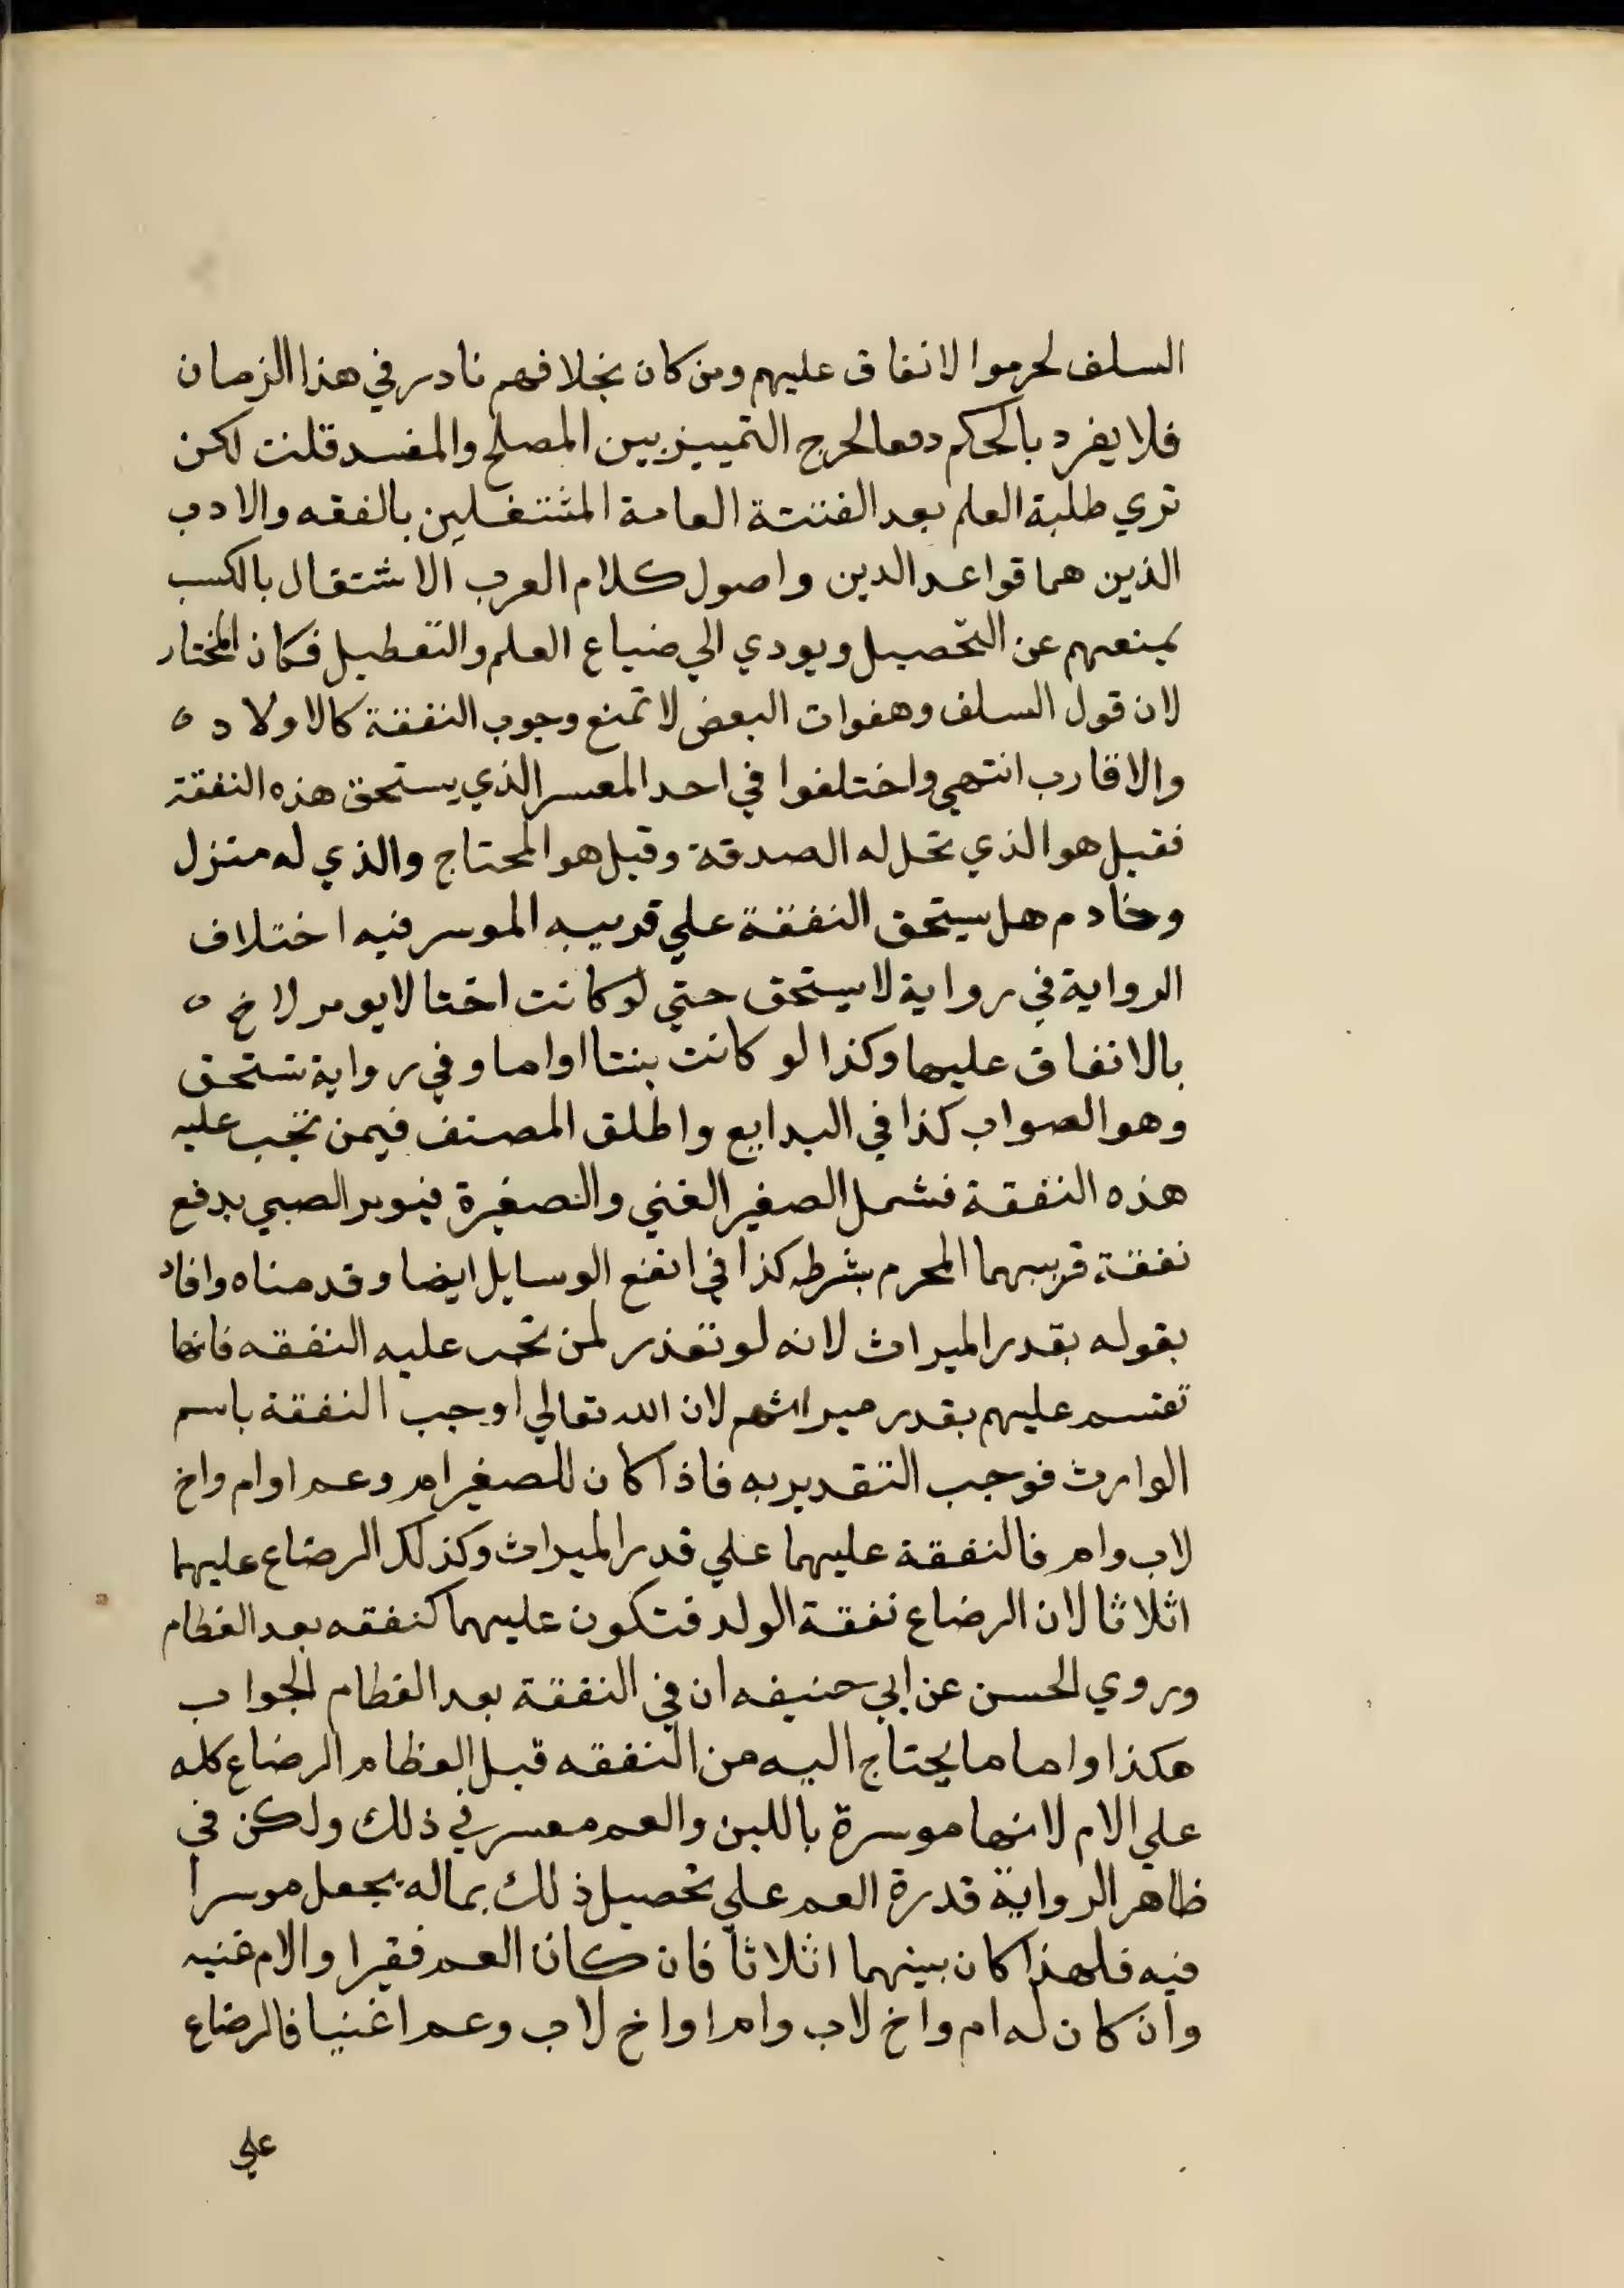 السلف لحرموا الانفاق عليهم ومن كان بخلافهم نادر في هذا الزمان
فلا يفرد بالحكم دفعا لحرج التمييز بين المصلح والمفسد قلت لكن
تري طلبة العلم بعد الفتنة العامة المشتغلين بالفقه والادب
الذين هما قواعد الدين واصول كلام العرب الاشتغال بالكسب
يمنعهم عن التحصيل ويودي الي ضياع العلم والتعطيل فكان المختار
لان قول السلف وهفوات البعض لا تمنع وجوب النفقة كالاولاد ه
والاقارب انتهي واختلفوا في احد المعسر الذي يستحق هذه النفقة
فقيل هو الذي تحل له الصدقة وقيل هو المحتاج والذي له منزل
وخادم هل يستحق النفقة علي قريبه الموسر فيه اختلاف
الرواية في رواية لا يستحق حتي لو كانت اختا لا يومر لاخ ه
بالانفاق عليها وكذا لو كانت بنتا او اما وفي رواية تستحق
وهو الصواب كذا في البدايع واطلق المصنف فيمن تجب عليه
هذه النفقة فشمل الصغير الغني والصغيرة فيومر الصبي بدفع
نفقة قريبهما المحرم بشرطه كذا في انفع الوسايل ايضا وقد مناه وافاد
بقوله بقدر الميراث لانه لو تعذر لمن تجب عليه النفقه فانها
تقسم عليهم بقدر ميراثهم لان الله تعالي اوجب النفقة باسم
الوارث فوجب التقدير به فاذا كان للصغير ام وعم او ام واخ
لاب وام فالنفقة عليهما علي قدر الميراث وكذلك الرضاع عليهما
اثلاثا لان الرضاع نفقة الولد فتكون عليهما كنفقه بعد الفطام
وروي الحسن عن ابي حنيفه ان في النفقة بعد الفطام الجواب
هكذا واما ما يحتاج اليه من النفقه قبل الفطام الرضاع كله
علي الام لانها موسرة باللبن والعم معسر في ذلك ولكن في
ظاهر الرواية قدرة العم علي تحصيل ذلك بماله يجعل موسرا
فيه فلهذا كان بينهما اثلاثا فان كان العم فقيرا والام غنيه
وان كان له ام واخ لاب وام او اخ لاب وعم اغنيا فالرضاع
علي